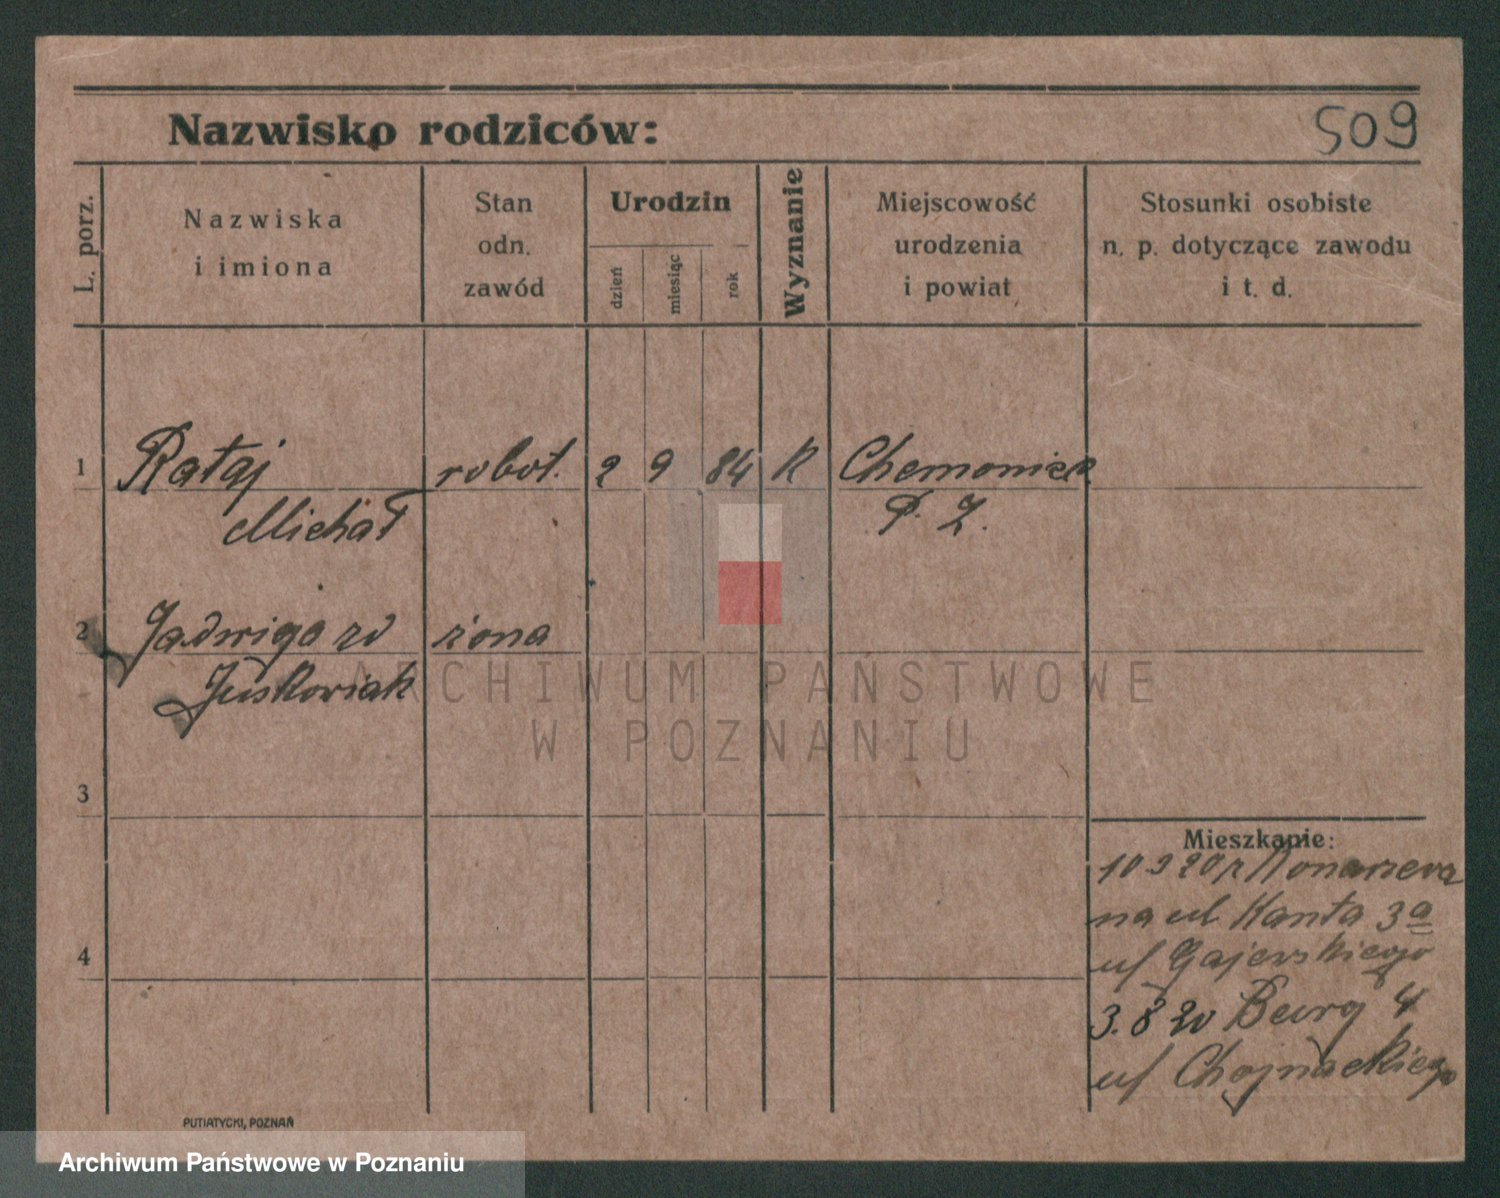 Nazwisko rodziców:
509
L. porz.
Nazwiska
i imiona
Stan
odn.
zawód
Urodzin
dzień
miesiąc
rok
Wyznanie
Miejscowość
urodzenia
i powiat
Stosunki osobiste
n. p. dotyczące zawodu
i t. d.
1
Rataj robot. 2 9 84 K
Michał P. Z.
2
Jadwiga żona
Juskowiak
ARCHIWUM PAŃSTWOWE
W POZNANIU
3
Mieszkanie:
10 3 20 z Konarzewa
na ul Kanta 3a
4
uf Gajewskiego
3. 8 20 Burg 4
uf Chojnackiego
PUTIATYCKI, POZNAŃ
Archiwum Państwowe w Poznaniu